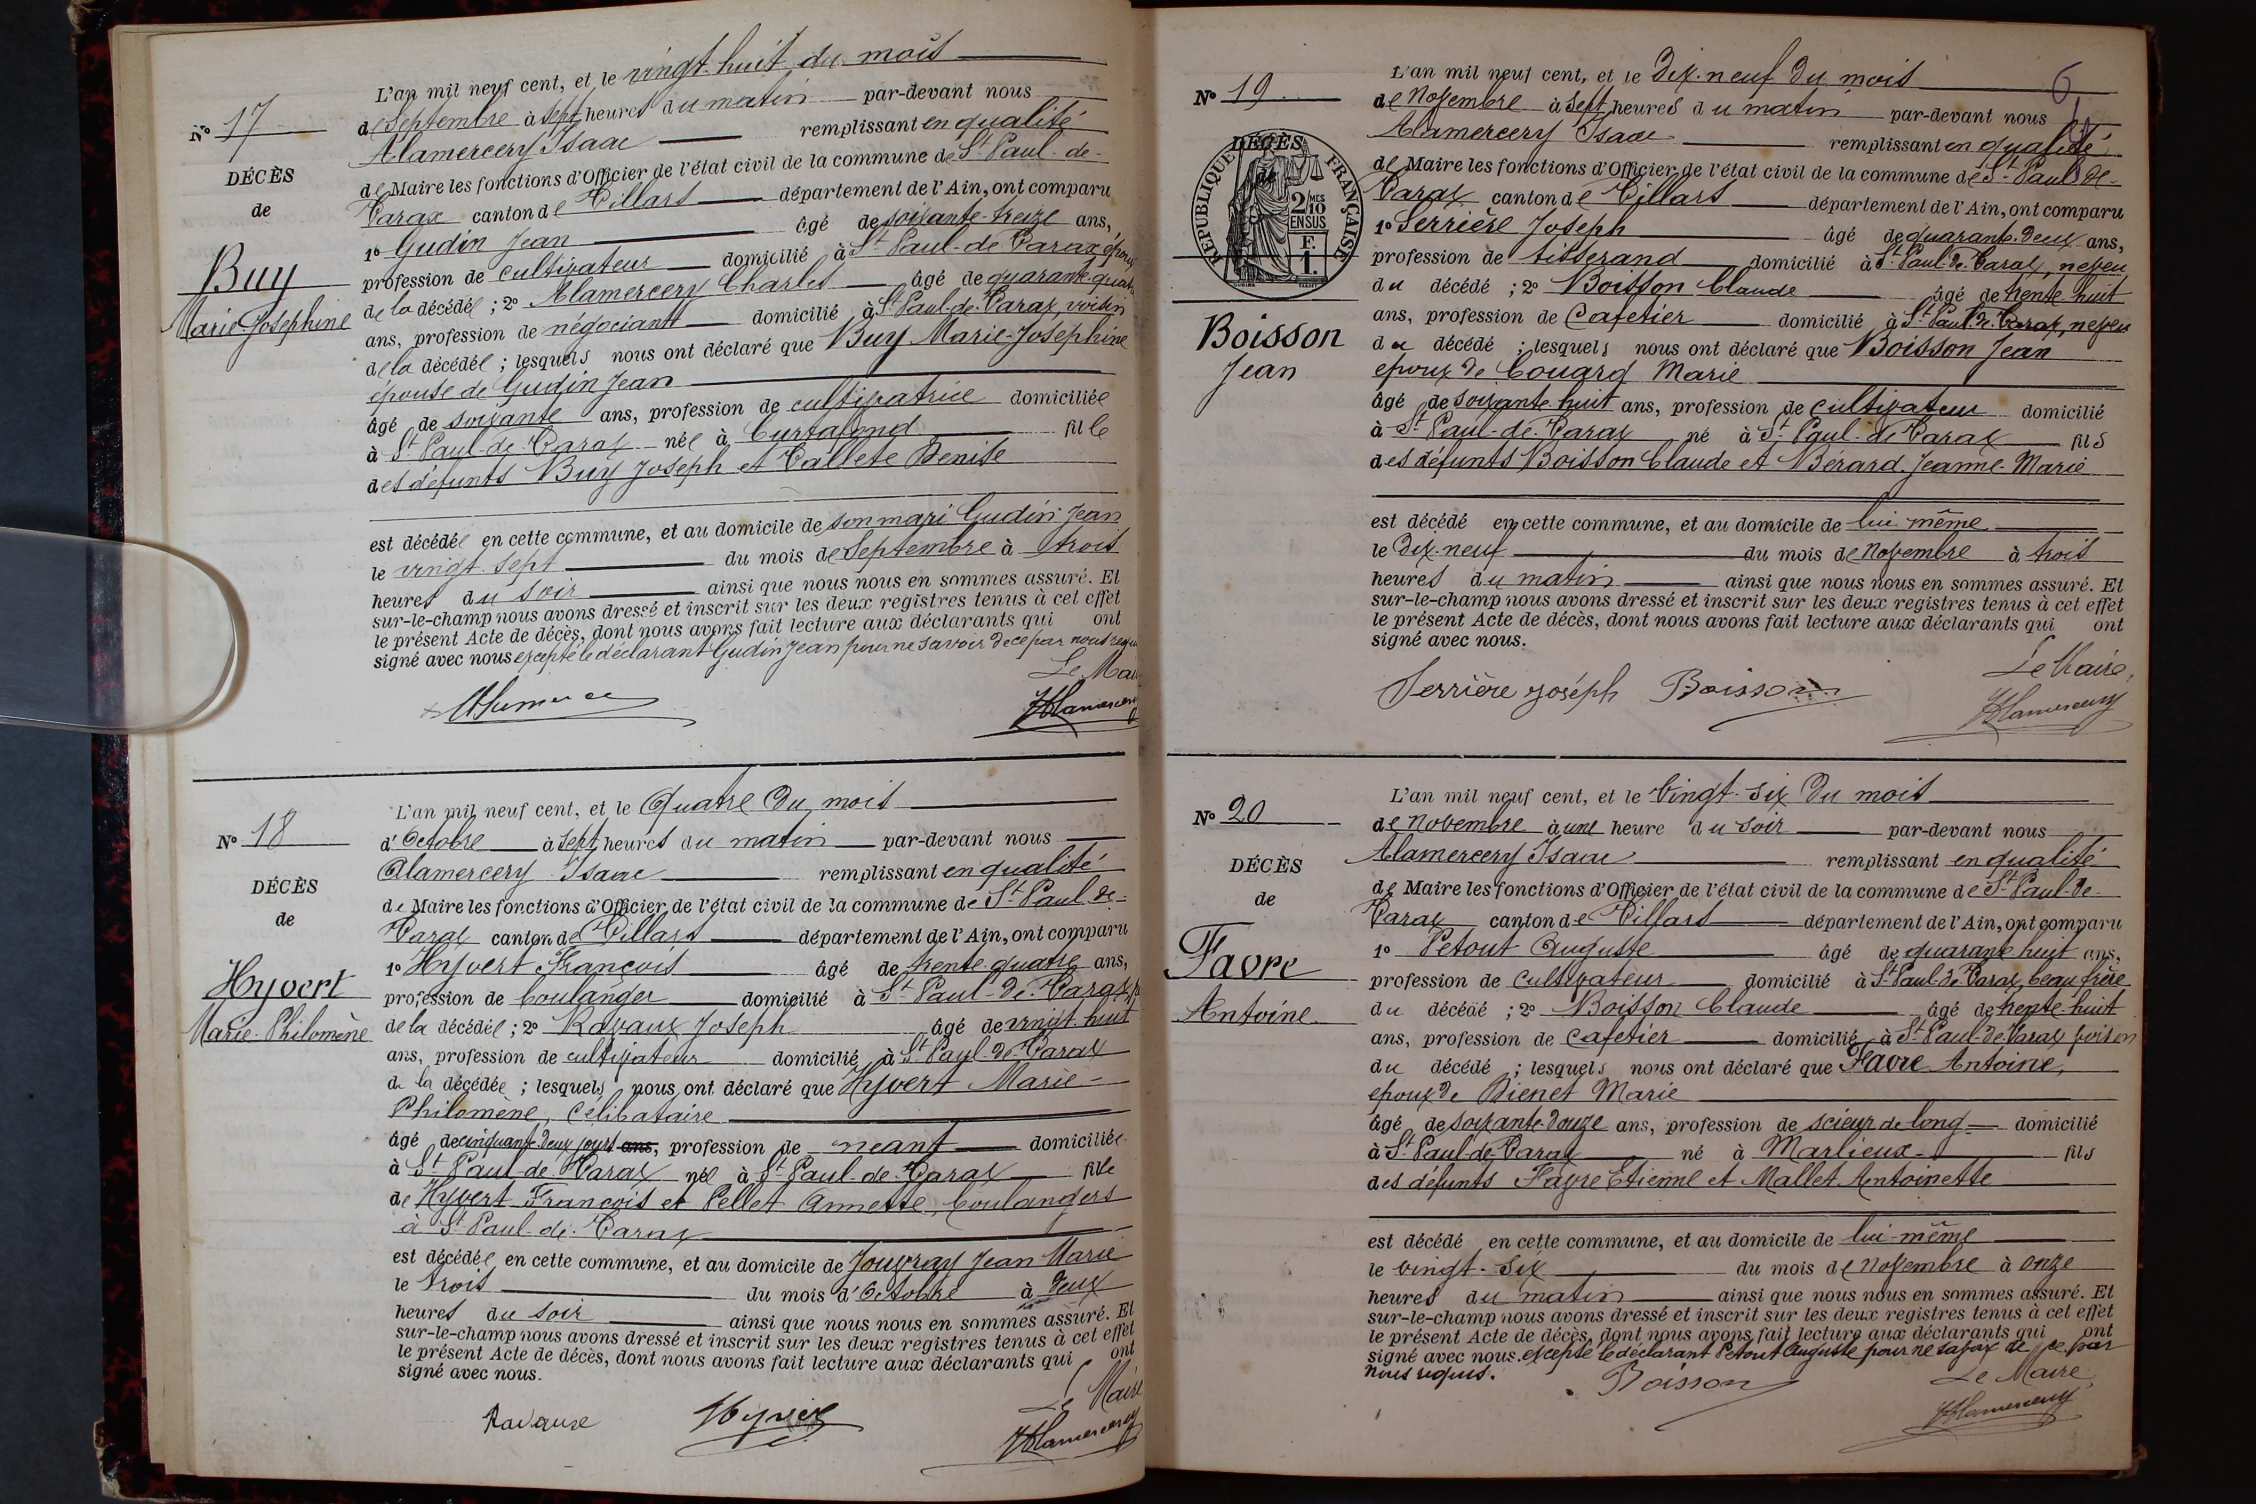 L'an mil neuf cent, et le vingt-huit du mois
Nº 17
de Septembre à sept heures du matin par-devant nous
Alamercery Isaac remplissant en qualité
de Maire les fonctions d'Officier de l'état civil de la commune de St Paul-de-
Varax canton de Villars département de l'Ain, ont comparu
1º Gudin Jean âgé de soixante-treize ans,
profession de cultivateur domicilié à St Paul-de-Varax, époux
de la décédée ; 2º Alamercery Charles âgé de quarante-quatre
ans, profession de négociant domicilié à St Paul-de-Varax, voisin
de la décédée ; lesquels nous ont déclaré que Buy Marie-Joséphine
épouse de Gudin Jean
âgé de soixante ans, profession de cultivatrice domiciliée
à St Paul-de-Varax née à Curtafond fille
des défunts Buy Joseph et Vallete Denise
DÉCÈS
de
Buy
Marie-Joséphine
est décédée en cette commune, et au domicile de son mari Gudin Jean
le vingt-sept du mois de Septembre à trois
heures du soir ainsi que nous nous en sommes assuré. Et
sur-le-champ nous avons dressé et inscrit sur les deux registres tenus à cet effet
le présent Acte de décès, dont nous avons fait lecture aux déclarants qui ont
signé avec nous excepté le déclarant Gudin Jean pour ne savoir de ce par nous requis
Le Maire
Alamercery
L'an mil neuf cent, et le Quatre du mois
Nº 18
d'Octobre à sept heures du matin par-devant nous
Alamercery Isaac remplissant en qualité
de Maire les fonctions d'Officier de l'état civil de la commune de St Paul de-
Varax canton de Villars département de l'Ain, ont comparu
1º Hyvert François âgé de trente quatre ans,
profession de boulanger domicilié à St Paul-de-Varax
de la décédée ; 2º Ravaux Joseph âgé de vingt huit
ans, profession de cultivateur domicilié à St Paul-de-Varax
de la décédée ; lesquels nous ont déclaré que Hyvert Marie-
Philomène, célibataire
âgé de cinquante deux jours ans, profession de néant domiciliée
à St Paul-de-Varax née à St Paul-de-Varax fille
de Hyvert François et Pellet Annette, boulangers
à St Paul-de-Varax
DÉCÈS
de
Hyvert
Marie-Philomène
est décédée en cette commune, et au domicile de Jouvray Jean Marie
le trois du mois d'Octobre à deux
heures du soir ainsi que nous nous en sommes assuré. Et
sur-le-champ nous avons dressé et inscrit sur les deux registres tenus à cet effet
le présent Acte de décès, dont nous avons fait lecture aux déclarants qui ont
signé avec nous.
Le Maire
Ravaux Hyvert Alamercery
6
L'an mil neuf cent, et le Dix-neuf du mois
Nº 19
de Novembre à sept heures du matin par-devant nous
Alamercery Isaac remplissant en qualité
de Maire les fonctions d'Officier de l'état civil de la commune de St Paul de-
Varax canton de Villars département de l'Ain, ont comparu
1º Serrière Joseph âgé de quarante-deux ans,
profession de tisserand domicilié à St Paul-de-Varax, neveu
du décédé ; 2º Boisson Claude âgé de trente-huit
ans, profession de cafetier domicilié à St Paul-de-Varax, neveu
du décédé ; lesquels nous ont déclaré que Boisson Jean
époux de Couard Marie
âgé de soixante-huit ans, profession de cultivateur domicilié
à St Paul-de-Varax né à St Paul-de-Varax fils
des défunts Boisson Claude et Bérard Jeanne-Marie
DÉCÈS
de
RÉPUBLIQUE FRANÇAISE
2/10 MES
EN SUS
F.
1.
Boisson
Jean
est décédé en cette commune, et au domicile de lui-même
le Dix-neuf du mois de Novembre à trois
heures du matin ainsi que nous nous en sommes assuré. Et
sur-le-champ nous avons dressé et inscrit sur les deux registres tenus à cet effet
le présent Acte de décès, dont nous avons fait lecture aux déclarants qui ont
signé avec nous.
Le Maire,
Serrière Joséph Boisson Alamercery
L'an mil neuf cent, et le Vingt-six du mois
Nº 20
de Novembre à une heure du soir par-devant nous
Alamercery Isaac remplissant en qualité
de Maire les fonctions d'Officier de l'état civil de la commune de St Paul-de-
Varax canton de Villars département de l'Ain, ont comparu
1º Petout Auguste âgé de quarante huit ans,
profession de cultivateur domicilié à St Paul-de-Varax, beau frère
du décédé ; 2º Boisson Claude âgé de trente-huit
ans, profession de cafetier domicilié à St Paul-de-Varax voisin
du décédé ; lesquels nous ont déclaré que Favre Antoine,
époux de Dienet Marie
âgé de soixante-douze ans, profession de scieur de long domicilié
à St Paul-de-Varax né à Marlieux fils
des défunts Favre Etienne et Mallet Antoinette
DÉCÈS
de
Favre
Antoine
est décédé en cette commune, et au domicile de lui-même
le vingt-six du mois de Novembre à onze
heures du matin ainsi que nous nous en sommes assuré. Et
sur-le-champ nous avons dressé et inscrit sur les deux registres tenus à cet effet
le présent Acte de décès, dont nous avons fait lecture aux déclarants qui ont
signé avec nous. excepté le déclarant Petout Auguste pour ne savoir de ce par
nous requis.
Le Maire,
Boisson Alamercery